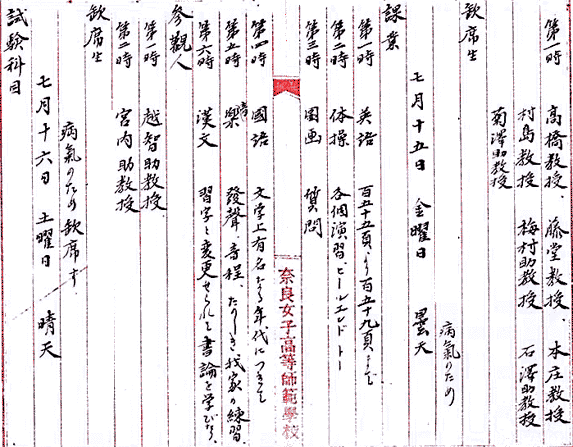 第一時 高橋教授、藤堂教授、本庄教授
村島教授 梅村助教授 石澤助教授
菊澤助教授
欠席生
病氣のため
七月十五日 金曜日 曇天
課業
第一時 英語 百五十五頁より百五十九頁まで
第二時 体操 各個演習、ヒールエンドトー
第三時 圖画 質問
奈良女子高等師範學校
第四時 國語 文学上有名なる年代につきて
第五時 音樂 發聲、音程、たのしき我家の練習、
第六時 漢文 習字と変更せられて書論を学びたり、
参觀人
第一時 越智助教授
第二時 宮内助教授
欠席生
病氣のため欠席す、
七月十六日 土曜日 晴天
試験科目